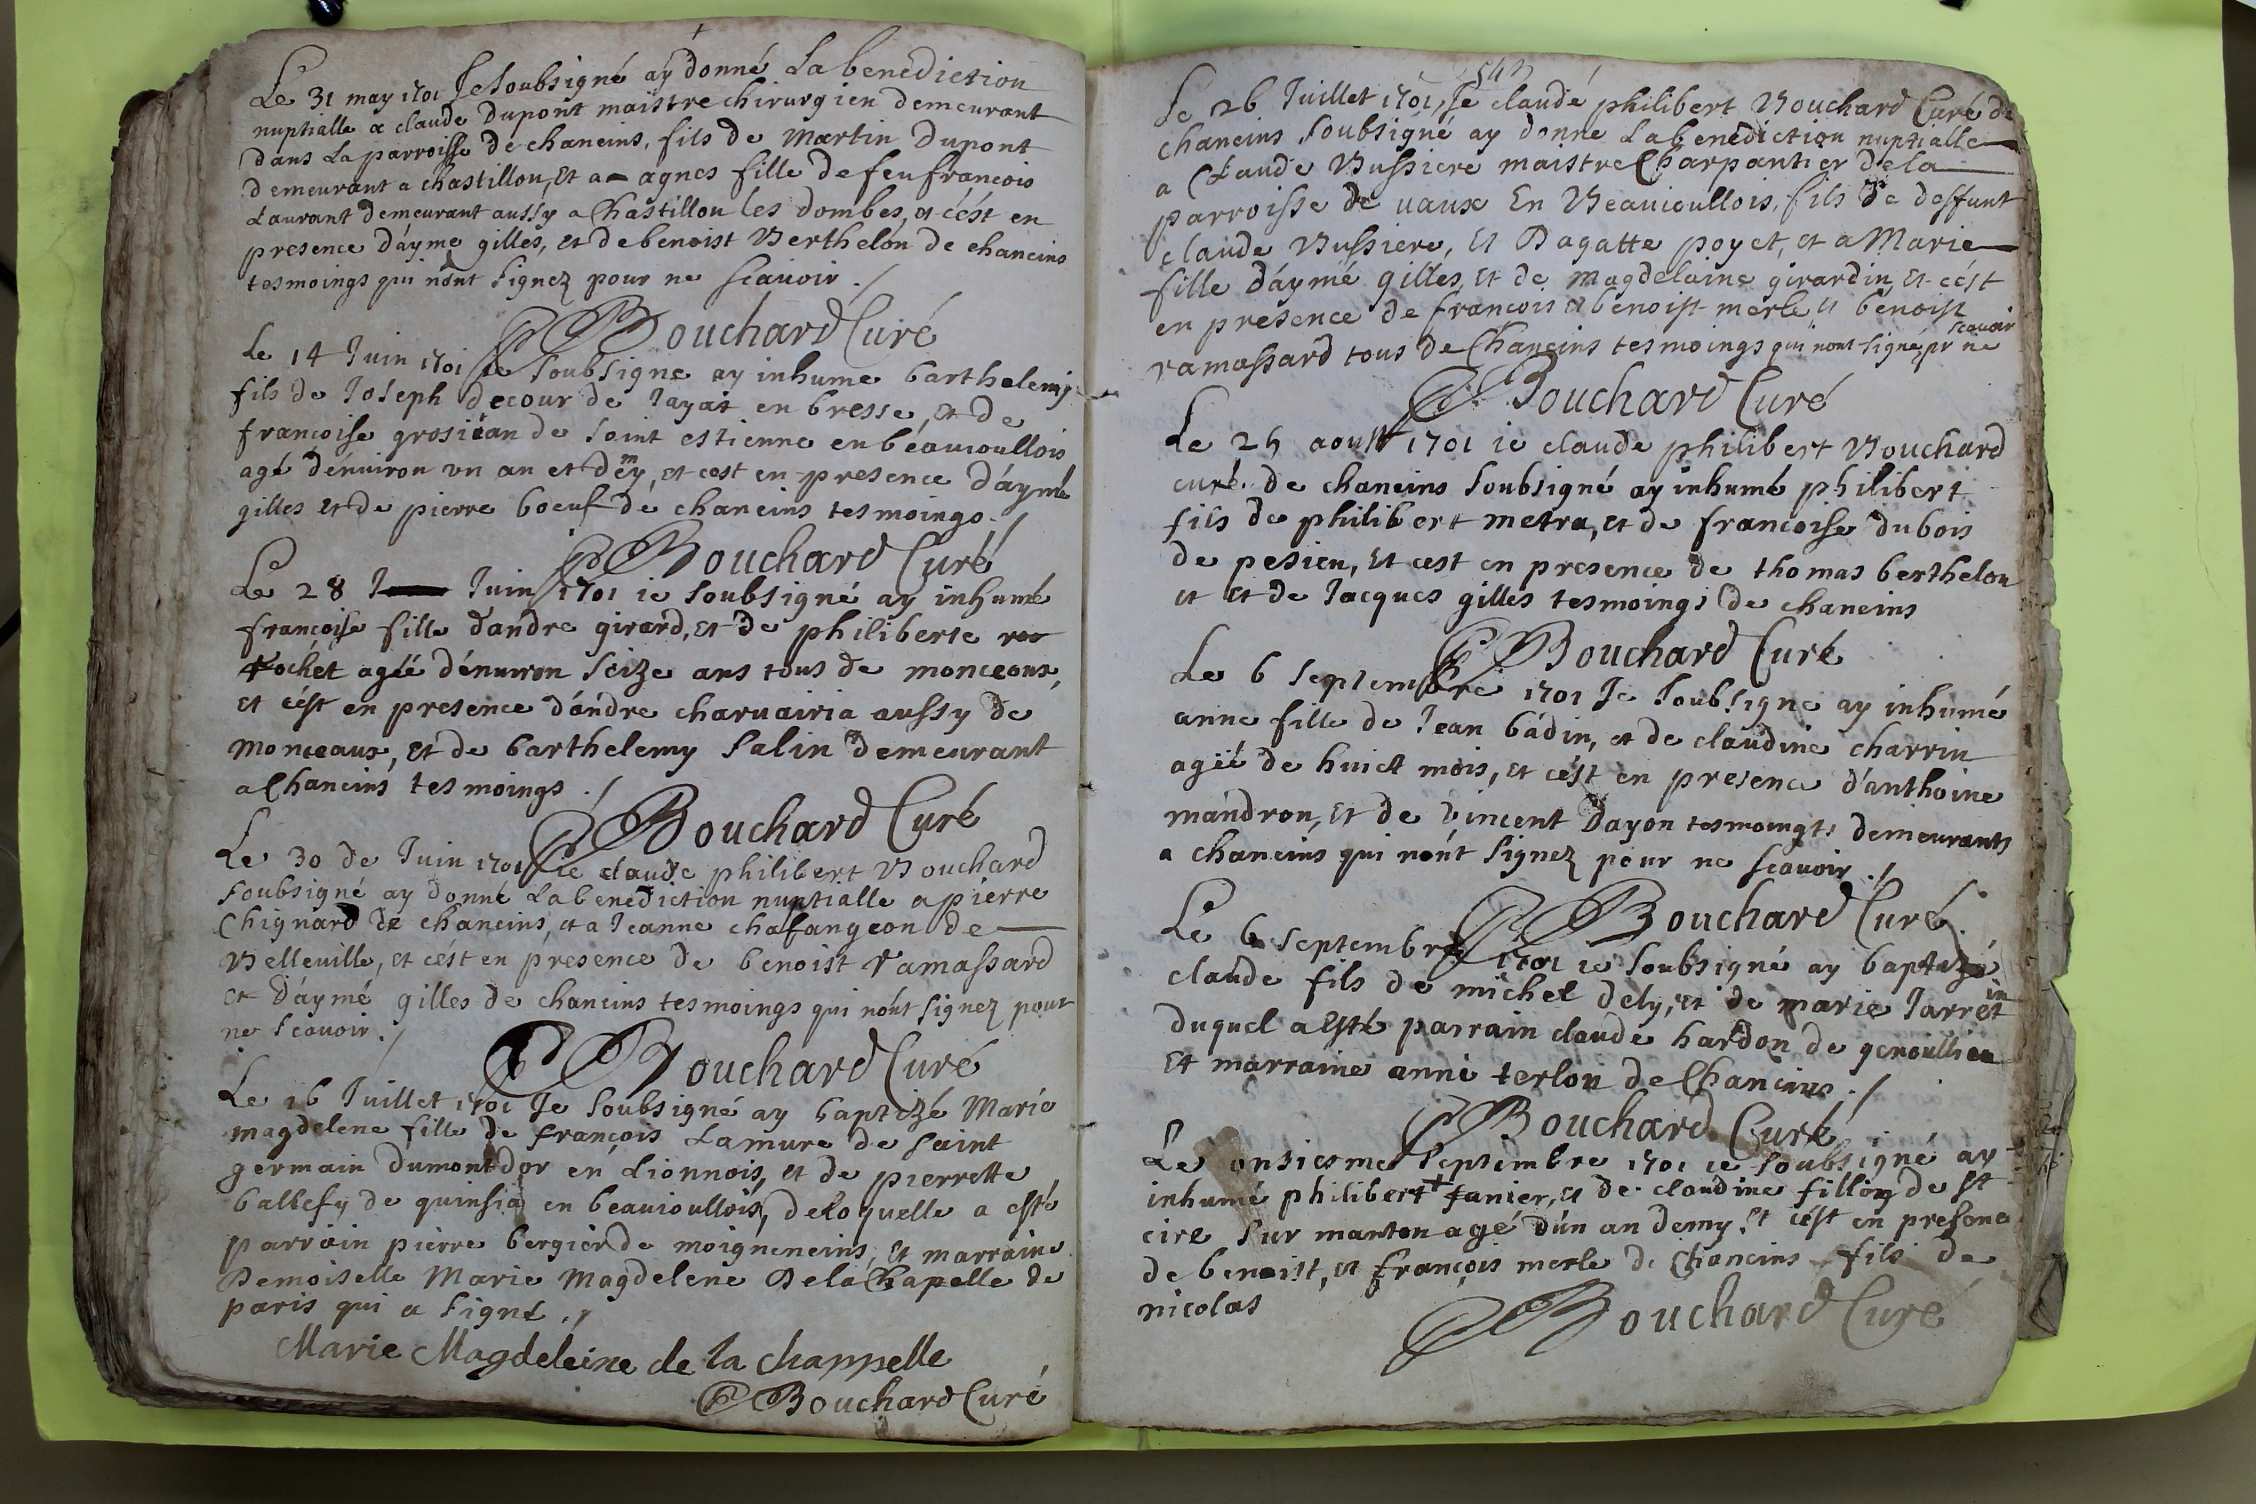 Le 31 may 1701 Je soubsigné ay donné La benediction
nuptialle a claude dupont maistre chirurgien demeurant
dans La parroisse de chaneins, fils de Martin Dupont
demeurant a chastillon, et a agnes fille de feu francois
Laurant demeurant aussy a Chastillon les dombes, et c'ést en
presence d'áyme gilles, et de benoist Berthelon de chaneins
tesmoings qui n'ont signez pour ne scauoir ./
Bouchard Curé
Le 14 Juin 1701 ie soubsigne ay inhume barthelemy
fils de Joseph decour de Jayat en bresse, et de
francoise de saint estienne en beauioullois
agé d'enuiron vn an et demy, et cest en presence d'áymé
gilles et de pierre boeuf de chaneins tesmoings ./
Bouchard Curé
Le 28 Juin 1701 ie soubsigné ay inhumé
françoise fille d'andre girard, et de philiberte
rochet agéé d'enuiron seize ans tous de monceaux,
et c'ést en presence d'ándre charuairia aussy de
monceaux, et de barthelemy salin demeurant
a Chaneins tesmoings ./
Bouchard Curé
Le 30 de Juin 1701 ie claude philibert Bouchard
soubsigné ay donné La benediction nuptialle a pierre
Chignard de chaneins, et a Jeanne chafangeon de
Belleuille, et c'ést en presence de benoist ramassard
et d'áymé gilles de chaneins tesmoings qui n'ont signez pour
ne scauoir ./
Bouchard Curé
Le 16 Juillet 1701 Je soubsigné ay baptizé Marie
magdelene fille de françois Lamure de saint
germain dumontdor en Lionnois, et de pierrette
ballefy de quinsia en beauioullois, de laquelle a esté
parrain pierre bergier de moigneneins, et marraine
Demoiselle Marie Magdelene De la Chapelle de
paris qui a signé ./
Marie Magdeleine de la chappelle
Bouchard Curé
Le 26 Juillet 1701, Je claude philibert Bouchard Curé de
chaneins soubsigné ay donne La benediction nuptialle
a Claude Bussiere maistre Charpantier de la
parroisse de uaux En Beauioullois, fils de deffunt
claude Bussiere, et Dagatte poyet, et a Marie
fille d'áymé gilles, et de magdelaine girardin, et c'ést
en presence de francois et benoist merle, et benoist
scauoir
ramassard tous de Chaneins tesmoings qui n'ont signé, pr ne
Bouchard Curé
Le 25 aoust 1701 ie claude philibert Bouchard
curé de chaneins soubsigné ay inhumé philibert
fils de philibert metra, et de francoise dubois
de pesieu, et cest en presence de thomas berthelon
et et de Jacques gilles tesmoings de chaneins
Bouchard Curé
Le 6 septembre 1701 Je soubsigne ay inhumé
anne fille de Jean bádin, et de claudine charrin
agéé de huict mois, et c'ést en presence d'anthoine
mandron, et de vincent dayon tesmoingts demeurants
a chaneins qui n'ont signez pour ne scauoir ./
Bouchard Curé
Le 6 septembre 1701 ie soubsigné ay baptizé
claude fils de michel dely, et de marie Jarret
in
duquel a esté parrain claude hardon de genoullieu
et marraine anne terlon de Chaneins ./
Bouchard Curé
Le onsiesme septembre 1701 ie soubsigné ay
inhumé philibert + fanier, et de claudine fillon de st
cire sur manton agé d'ún an demy, et c'ést en presence
de benoist, et françois merle de Chaneins fils de
nicolas
Bouchard Curé